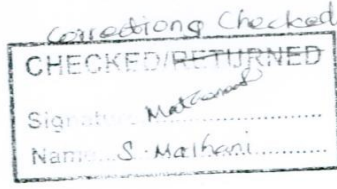 Corrections Checked
CHECKED/RETURNED
Signature
Name S. Malhani